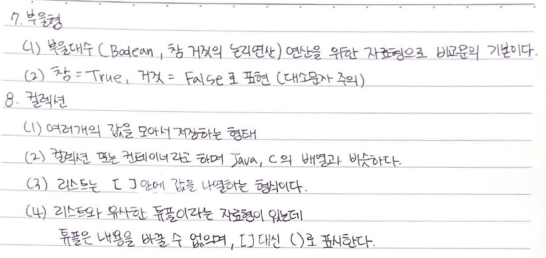 7. 부울형
(1) 부울대수 (Boolean, 참 거짓의 논리연산) 연산을 위한 자료형으로 비교문의 기본이다.
(2) 참 = True, 거짓 = False 로 표현 (대소문자 주의)
8. 컬렉션
(1) 여러개의 값을 모아서 저장하는 형태
(2) 컬렉션 또는 컨테이너라고 하며 Java, C의 배열과 비슷하다.
(3) 리스트는 [ ] 안에 값을 나열하는 형식이다.
(4) 리스트와 유사한 튜플이라는 자료형이 있는데
튜플은 내용을 바꿀 수 없으며, [ ] 대신 ( )로 표시한다.